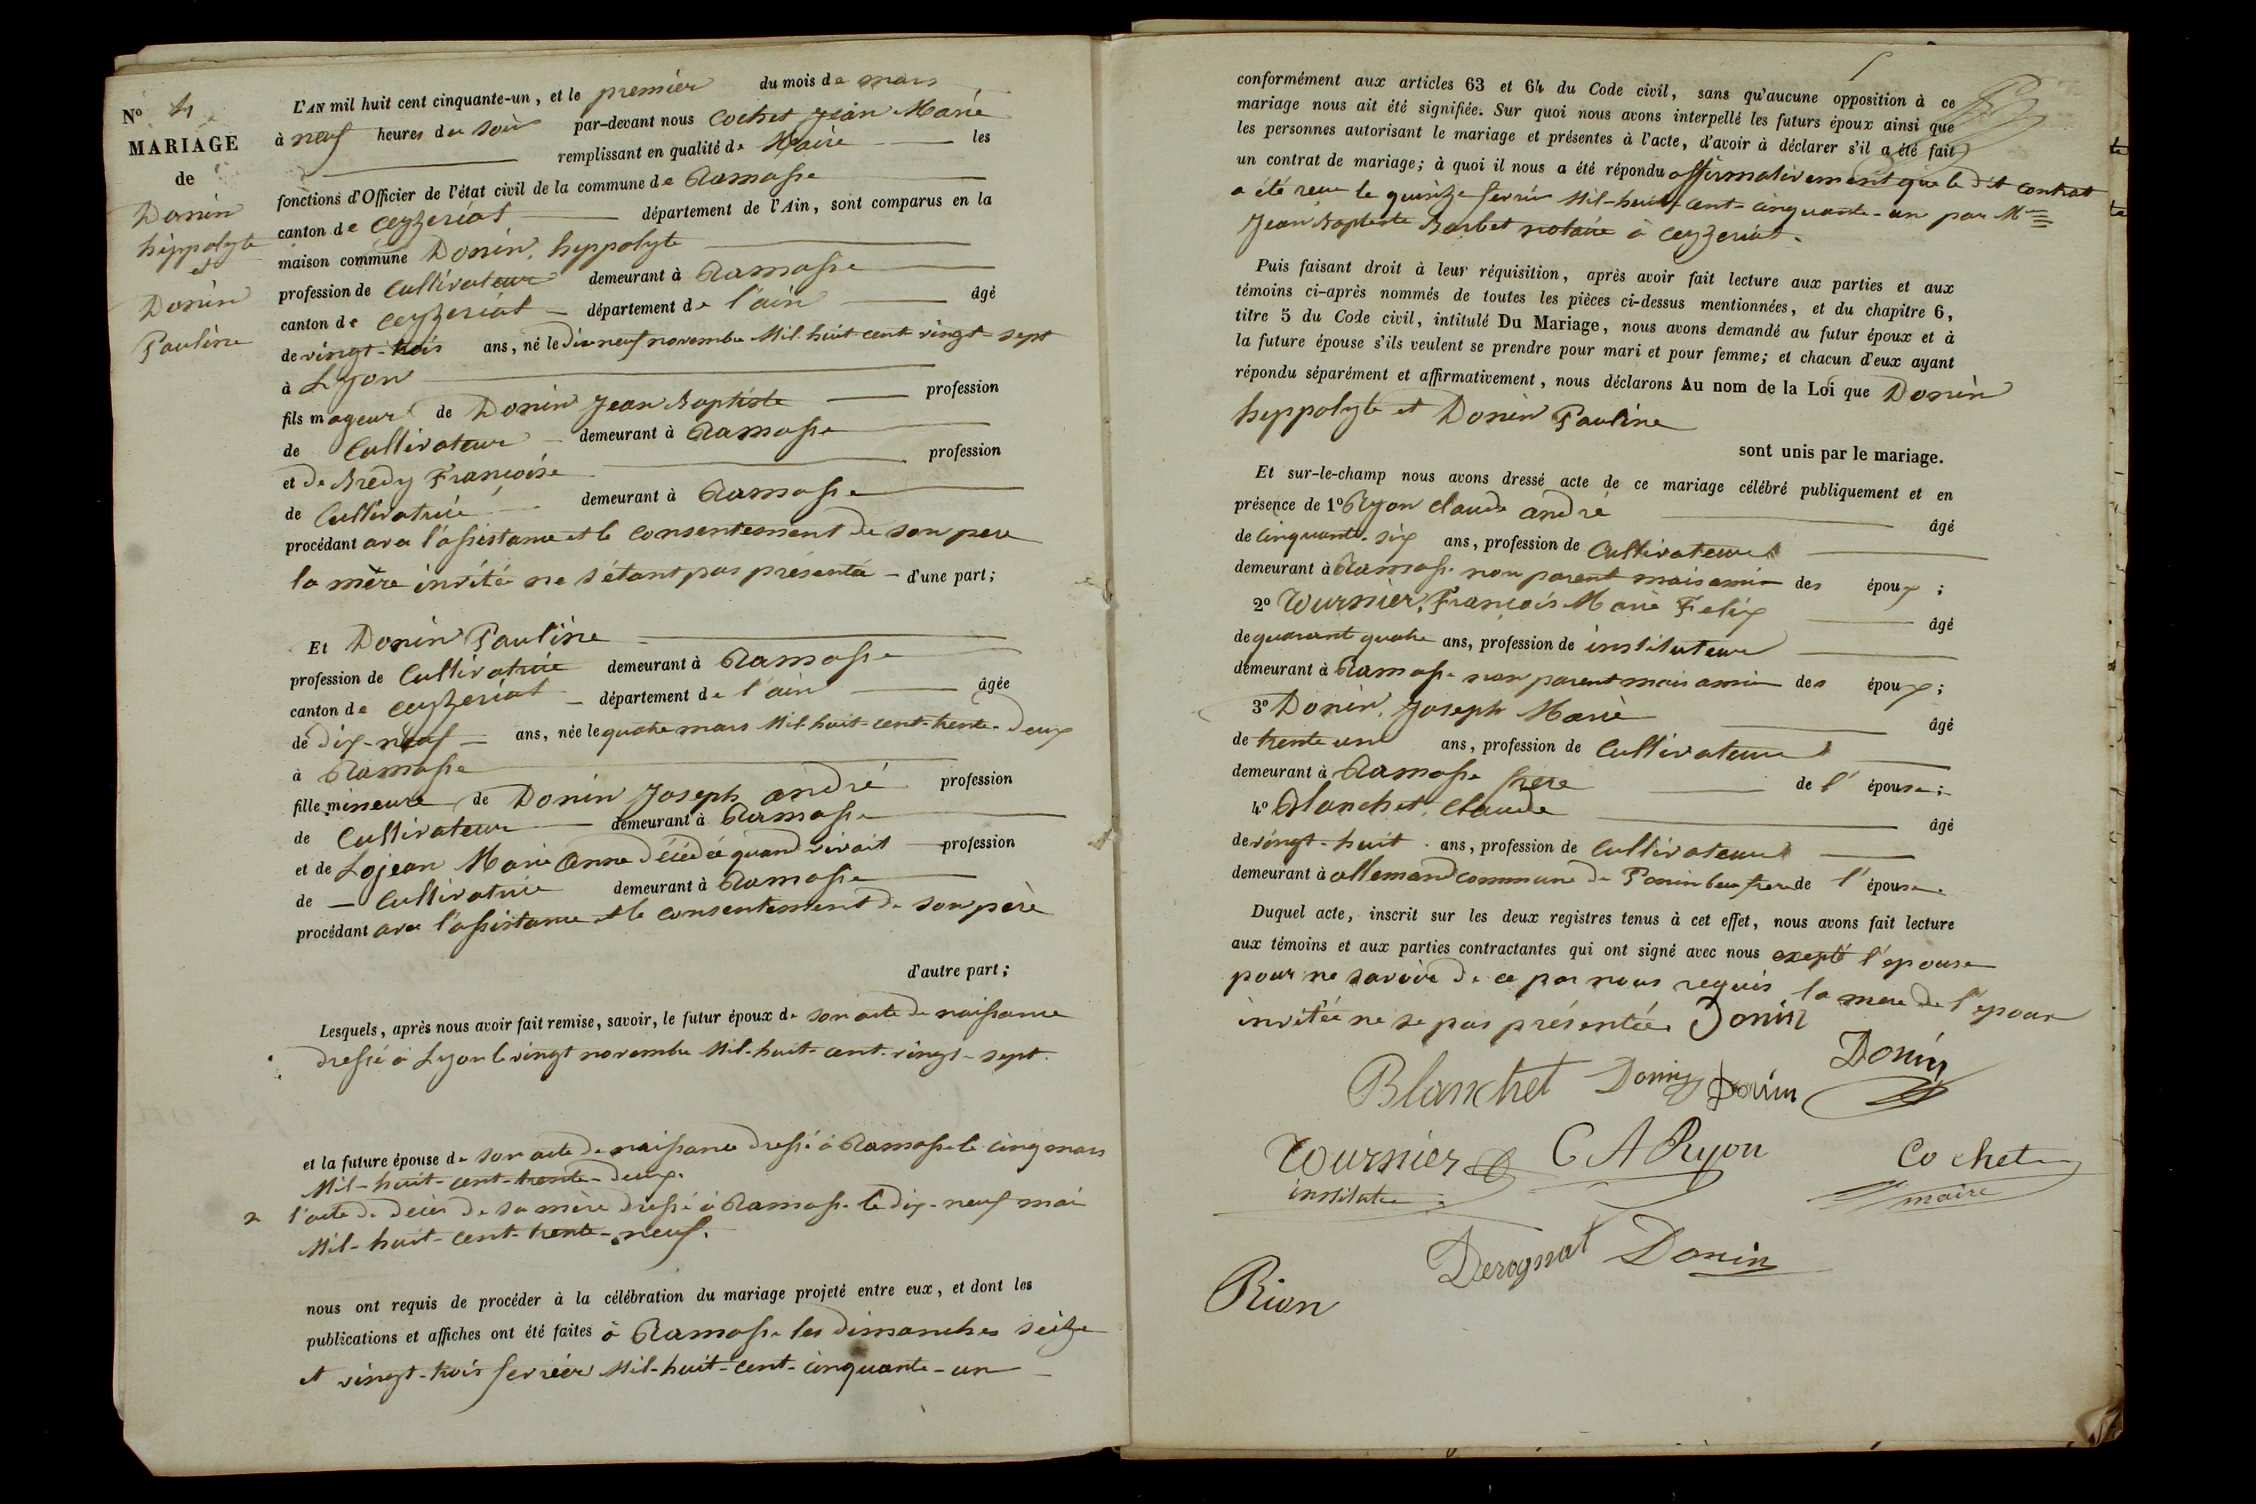 N° 4
MARIAGE
de
Donin
hippolyte
et
Donin
Pauline
L'AN mil huit cent cinquante-un, et le premier du mois de mars
à neuf heures du soir par-devant nous Cochet Jean Marie
remplissant en qualité de Maire les
fonctions d'Officier de l'état civil de la commune de Ramasse
canton de Ceyzeriat département de l'Ain, sont comparus en la
maison commune Donin, hyppolyte
profession de Cultivateur demeurant à Ramasse
canton de Ceyzeriat département de l'ain âgé
de vingt-trois ans, né le dix neuf novembre Mil-huit-cent-vingt-sept
à Lyon
fils mageur de Donin Jean Baptiste profession
de Cultivateur demeurant à Ramasse
et de Bredy Francoise profession
de Cultivatrice demeurant à Ramasse
procédant avec l'assistance et le consentement de son pere
la mère invitée ne s'étant pas présentée d'une part;
Et Donin Pauline
profession de Cultivatrice demeurant à Ramasse
canton de Ceyzeriat département de l'ain âgée
de dix-neuf ans, née le quatre mars Mil-huit-cent-trente-deux
à Ramasse
fille mineure de Donin Joseph andré profession
de Cultivateur demeurant à Ramasse
et de Lojean Marie Anne décédée quand vivait profession
de Cultivatrice demeurant à Ramasse
procédant avec l'assistance et le consentement de son père
d'autre part;
Lesquels, après nous avoir fait remise, savoir, le futur époux de son acte de naissance
dressé à Lyon le vingt novembre Mil-huit-cent-vingt-sept
et la future épouse de son acte de naissance dressé à Ramasse le cinq mars
Mil-huit-cent-trente-deux.
2 l'acte de décès de sa mère dressé à Ramasse le dix-neuf mai
Mil-huit-cent-trente-neuf.
nous ont requis de procéder à la célébration du mariage projeté entre eux, et dont les
publications et affiches ont été faites à Ramasse les dimanches seize
et vingt-trois fevrier Mil-huit-cent-cinquante-un
conformément aux articles 63 et 64 du Code civil, sans qu'aucune opposition à ce
mariage nous ait été signifiée. Sur quoi nous avons interpellé les futurs époux ainsi que
les personnes autorisant le mariage et présentes à l'acte, d'avoir à déclarer s'il a été fait
un contrat de mariage; à quoi il nous a été répondu affirmativement que le dit contrat
a été recu le quinze fevrier Mil-huit-cent-cinquante-un par Me
Jean Baptiste Barbet notaire à Ceyzeriat.
Puis faisant droit à leur réquisition, après avoir fait lecture aux parties et aux
témoins ci-après nommés de toutes les pièces ci-dessus mentionnées, et du chapitre 6,
titre 5 du Code civil, intitulé Du Mariage, nous avons demandé au futur époux et à
la future épouse s'ils veulent se prendre pour mari et pour femme; et chacun d'eux ayant
répondu séparément et affirmativement, nous déclarons Au nom de la Loi que Donin
hyppolyte et Donin Pauline
sont unis par le mariage.
Et sur-le-champ nous avons dressé acte de ce mariage célébré publiquement et en
présence de 1° Ryon claude andré âgé
de cinquante-six ans, profession de Cultivateur
demeurant à Ramasse non parent mais ami des époux;
2° Wurnier, François Marie Felix âgé
de quarant quatre ans, profession de instituteur
demeurant à Ramasse non parent mais ami des époux;
3° Donin, Joseph Marie âgé
de trente un ans, profession de Cultivateur
demeurant à Ramasse frere de l'épouse;
4° Blanchet, Claude âgé
de vingt-huit ans, profession de Cultivateur
demeurant à allemand commune de beau frere de l'épouse.
Duquel acte, inscrit sur les deux registres tenus à cet effet, nous avons fait lecture
aux témoins et aux parties contractantes qui ont signé avec nous exepté l'épouse
pour ne savoir de ce par nous requis la mere de l'epoux
invitée ne se pas présentée. Donin
Donin
Blanchet Donin Donin
Wurnier C A Ryon Cochet
maire
Derognat Donin
Rion